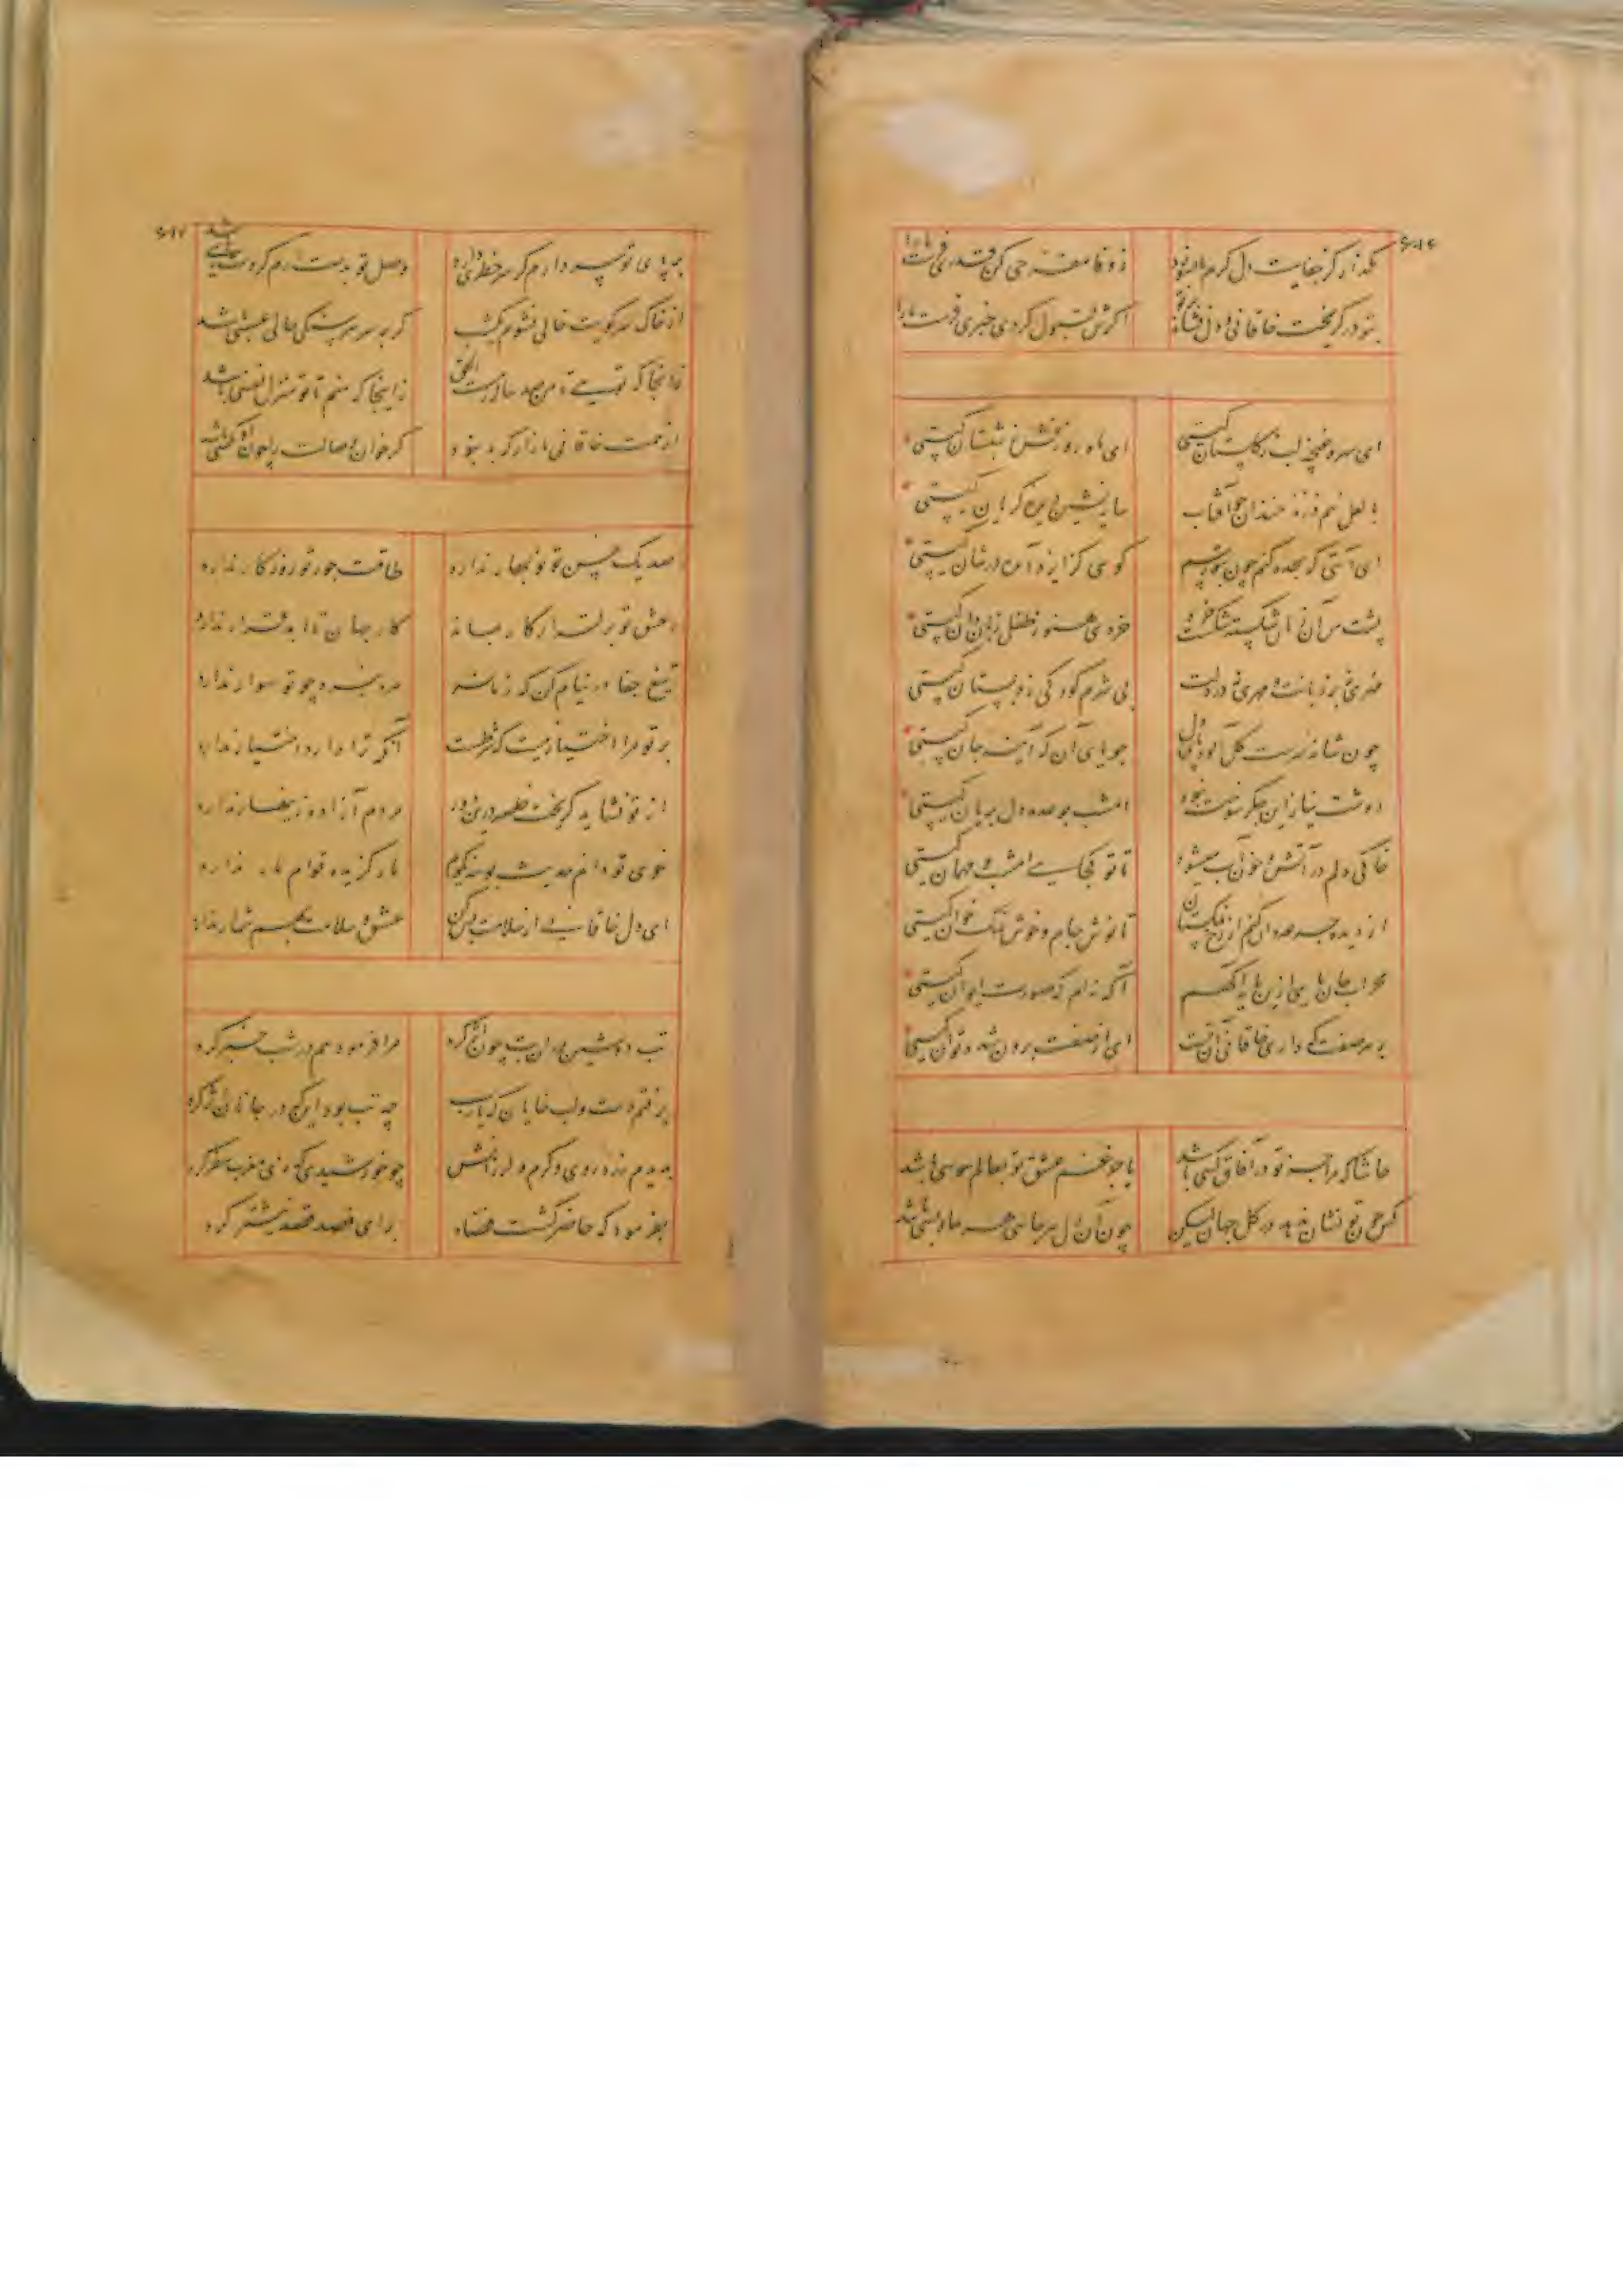 ۶۰۱۶
مگذار کز جفایت دل گرم ما بسوزد
ز وفا مفرحی کن قدری فرست ما را
بتو در گریخت خاقانی و دل فشاند بر تو
اگرش قبول کردی خبری فرست ما را
ای سرو غنچه لب ز گلستان کیستی
ای ماه روز وش ز شبستان کیستی
با لعل نیم ذره خندان چو آفتاب
سایه نشین دیده گریان کیستی
ای آیتی که سجده کنم چون بتو رسم
گوئی کز ایزد آمده در شان کیستی
پشت من از زبان شکسته شکست خرد
خردی هنوز طفل زبان دان کیستی
مهری نه بر زبانت و مهری نه در دلت
بی شرم کودکی ز دبستان کیستی
چون شانه
جویای آن که آینه جان کیستی
دوشت نیاز این جگر سوخت نبود
امشب بوعده دل بریان کیستی
خاکی دلم در آتش و خون آب میشود
تا تو کجایی امشب و مهمان کیستی
از دیده جرعه دان کنم از رخ نمکستان
تا نوش جام و خوش نمک خوان کیستی
محراب جان مایی ازین مایه آگهیم
آگه نه ایم که صورت ایوان کیستی
بر هر صفت که داری خاقانی آن تست
ای از صفت برون شده تو آن کیستی
حاشا که مرا جز تو در آفاق کسی باشد
یا جز غم عشق تو بعالم هوسی باشد
کس چون تو نشان ندهد در کل جهان لیکن
چون این دل هر جائی هر جای بسی باشد
۶۰۱۷
در پای تو سر دارم گر سر خطری دارد
وصل تو بدست آرم گر دسترسی باشد
از خاک سر کویت خالی نشوم یک شب
گر بر سر هر سنگی حالی عسسی باشد
ز آنجا که تویی تا من صد ساله رهست الحق
ز اینجا که منم تا تو منزل نفسی باشد
از همت خاقانی
گر خوان وصالت را جوان مگسی باشد
صد یک حسن تو نوبهار ندارد
طاقت جور تو روزگار ندارد
عشق تو بر قرار کار بماند
کار جهان تا ابد قرار ندارد
تیغ جفا در نیام کن که زمانه
مرد نبرد چو تو سوار ندارد
بر تو مرا اختیار نیست که شرطست
آنکه ترا دارد اختیار ندارد
از تو نشاید گریخت خاصه درین دور
مردم آزاده زینهار ندارد
خوی تو دانم حدیث بوسه نگویم
مار گزیده قوام مار ندارد
ای دل خاقانی از سلامت بس کن
عشق و سلامت بهم شمار ندارد
تب دوشین در آن بت چون اثر کرد
مرا فرمود و هم در شب خبر کرد
برفتم دست و لب خایان که یارب
چه تب بود اینکه در جانان اثر کرد
بدیدم زرد روی و گرم و لرزانش
چو خورشیدی که زی مغرب سفر کرد
بفرمود که حاضر گشت فصاد
برای فصد قصد نیشتر کرد